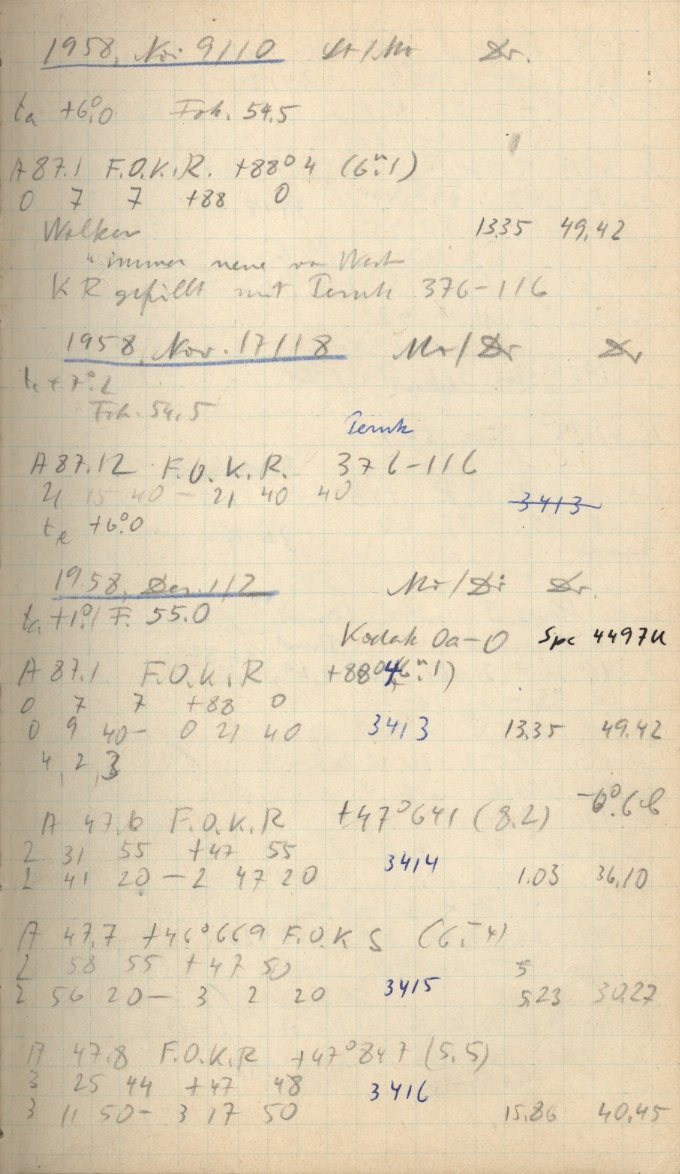 1958, Nov 9/10 Dr/Mr Dr.
ta +6°.0 Fok. 54.5
A 87.1 F.O.K.R. +88°4 (6m.1)
0 7 7 +88 0
Wolken 13.35 49.42
immer neue von West
KR gefüllt mit Pernk 376-116
1958, Nov. 17/18 Mr/Dr Dr
Fok. 54.5
Pernk
A 87.12 F.O.K.R. 376-116
21 15 40 - 21 40 40 3413
te +6°.0
1958, Dez. 1/2 Mr/Dr Dr.
ta +1°.1 F. 55.0
Kodak Oa-O Spc 4497U
A 87.1 F.O.K.R +88°4 (6m.1)
0 7 7 +88 0
0 9 40 - 0 21 40 3413 13.35 49.42
4, 2, 3
A 47.6 F.O.K.R +47°641 (8.2)
2 31 55 +47 55
2 41 20 - 2 47 20 3414 1.03 36.10
A 47.7 +46°669 F.O.K S
2 58 55 +47 50 5
2 56 20 - 3 2 20 3415 5.23 30.27
A 47.8 F.O.K.R +47°847 (5.5)
3 25 44 +47 48
3 11 50 - 3 17 50 3416 15.86 40.45